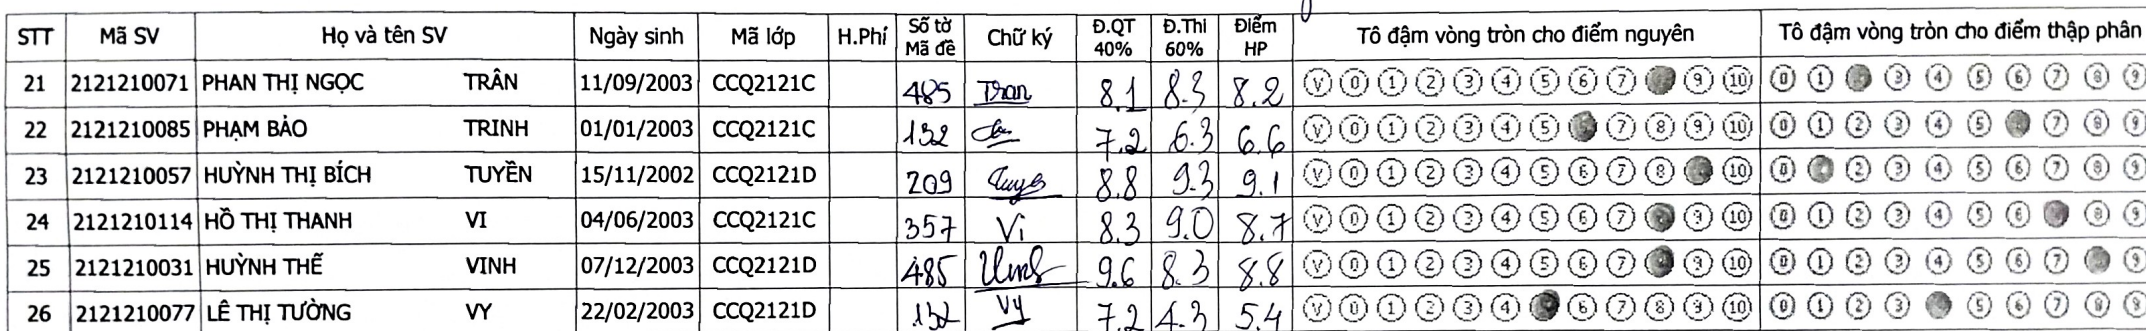 STT Mã SV Họ và tên SV Ngày sinh Mã lớp H.Phí Số tờ Mã đề Chữ ký Đ.QT 40% Đ.Thi 60% Điểm HP Tô đậm vòng tròn cho điểm nguyên Tô đậm vòng tròn cho điểm thập phân
21 2121210071 PHAN THỊ NGỌC TRÂN 11/09/2003 CCQ2121C 485 Tran 8.1 8.3 8.2 V 0 1 2 3 4 5 6 7 9 10 0 1 3 4 5 6 7 8 9
22 2121210085 PHẠM BẢO TRINH 01/01/2003 CCQ2121C 132 7.2 6.3 6.6 V 0 1 2 3 4 5 7 8 9 10 0 1 2 3 4 5 7 8 9
23 2121210057 HUỲNH THỊ BÍCH TUYỀN 15/11/2002 CCQ2121D 209 8.8 9.3 9.1 V 0 1 2 3 4 5 6 7 8 10 0 2 3 4 5 6 7 8 9
24 2121210114 HỒ THỊ THANH VI 04/06/2003 CCQ2121C 357 Vi 8.3 9.0 8.7 V 0 1 2 3 4 5 6 7 9 10 0 1 2 3 4 5 6 8 9
25 2121210031 HUỲNH THẾ VINH 07/12/2003 CCQ2121D 485 9.6 8.3 8.8 V 0 1 2 3 4 5 6 7 9 10 0 1 2 3 4 5 6 7 9
26 2121210077 LÊ THỊ TƯỜNG VY 22/02/2003 CCQ2121D 132 Vy 7.2 4.3 5.4 V 0 1 2 3 4 6 7 8 9 10 0 1 2 3 5 6 7 8 9